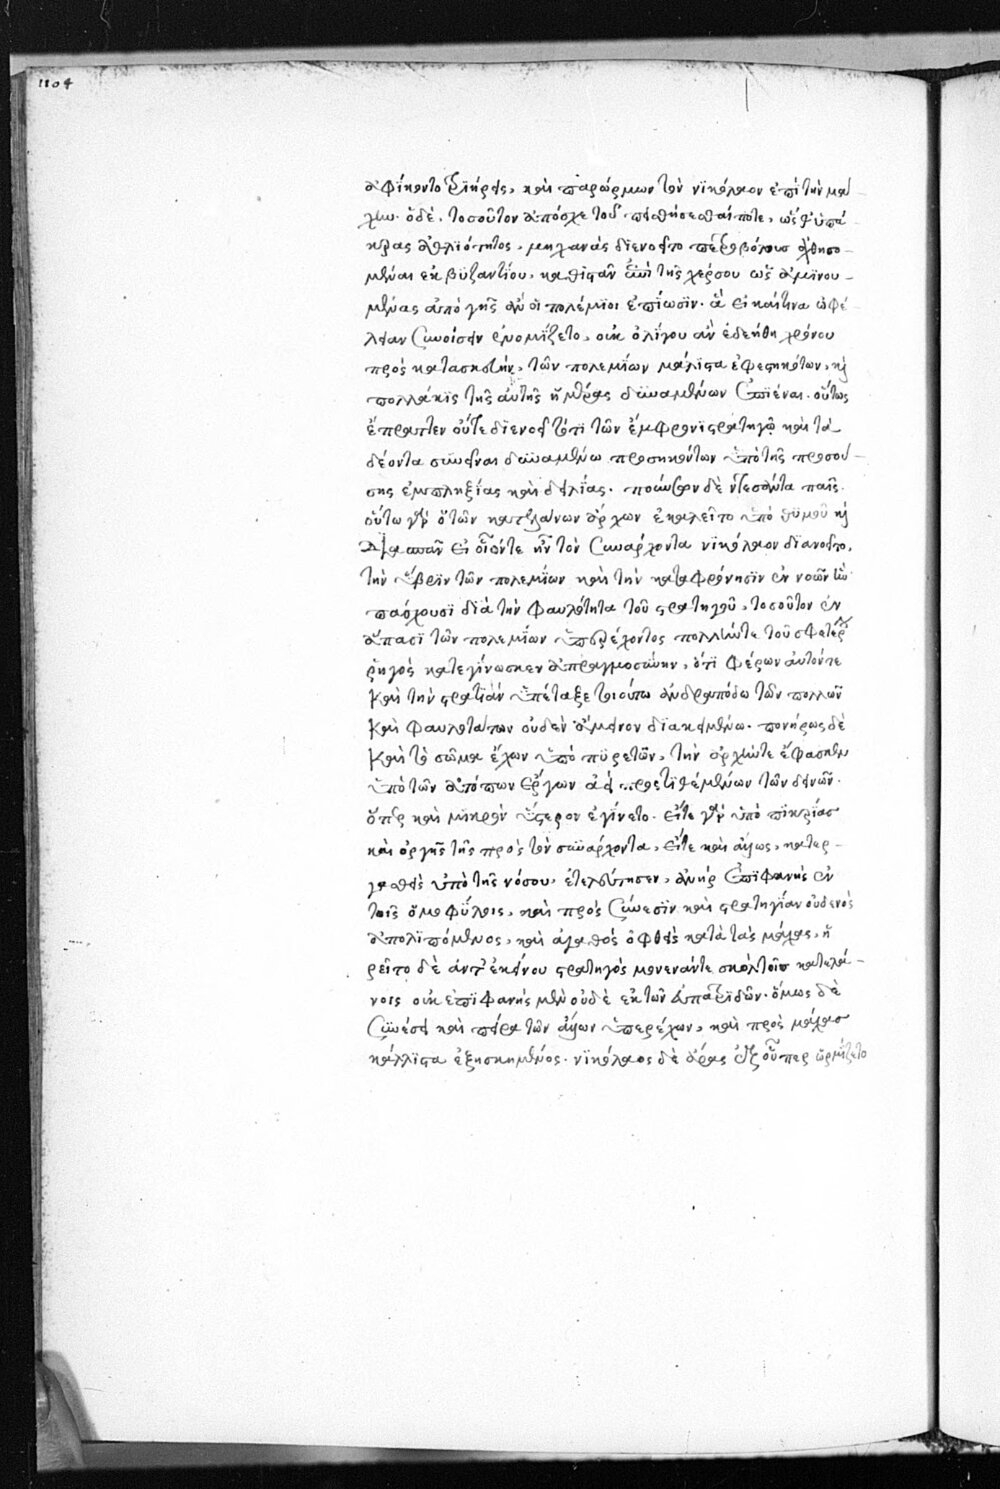 1104
ἀφίκοντο τριήρεις, καὶ παρώρμων τὸν νϊκόλαον ἐπὶ τὴν μά
χην. ὁ δὲ, τοσοῦτον ἀπόσχε τοῦ πεισθήσεσθαί ποτε, ὥσθ' ὑπ' ἄ
κρας ἀθλιότητος, μηχανὰς διενοεῖτο πετροβόλους
μένας ἐκ βυζαντίου, καθιστᾶν ἐπὶ τῆς χέρσου ὡς ἀμϋνου
μένας ἀπὸ γῆς ἂν οἱ πολέμιοι ἐπίωσϊν. ἃ εἰ καί τινα ὠφέ
λειαν συνοίσειν ἐνομίζετο, οὐκ ὀλίγου ἂν ἐδεήθη χρόνου
πρὸς κατασκευὴν, τῶν πολεμίων μάλιστα ἐφεστηκότων, καὶ
πολλάκις τῆς αὐτῆς ἡμέρας δυναμένων ἐπιέναι. οὕτως
ἔπραττεν οὔτε διενοεῖτό τι τῶν ἔμφρονι στρατηγῷ καὶ τὰ
δέοντα συνεῖναι δυναμένω προσηκόντων ὑπὸ τῆς προσού
σης ἐμπληξίας καὶ δειλίας. δὲ παῖς
οὕτω γὰρ ὁ τῶν κατελάνων ἄρχων ἐκαλεῖτο ὑπὸ θυμοῦ καὶ
εἰ οἷόντε ἦν τὸν συνάρχοντα νϊκόλαον διανοεῖτο,
τὴν ὕβρϊν τῶν πολεμίων καὶ τὴν καταφρόνησιν ἐν νοῶν ἣν
πάσχουσϊ διὰ τὴν φαυλότητα τοῦ στρατηγοῦ, τοσοῦτον ἐν
ἅπασϊ τῶν πολεμίων ὑπερέχοντος πολλήν τε τοῦ σφετέρου
ῥηγὸς κατεγίνωσκεν ἀπραγμοσύνην, ὅτϊ φέρων αὐτόν τε
καὶ τὴν στρατιὰν ὑπέταξε τοιούτω ἀνδραπόδω τῶν πολλῶν
καὶ φαυλοτάτων οὐδὲν ἄμεινον διακειμένω. πονήρως δὲ
καὶ τὸ σῶμα ἔχων ὑπὸ πϋρετῶν, τὴν ἀρχήν τε ἔφασκεν
ὑπὸ τῶν ἀτόπων ἔργων ἀεὶ προστιθεμένων τῶν δεινῶν.
ὅπερ καὶ μικρὸν ὕστερον ἐγίνετο. εἴτε γὰρ ὑπὸ πϊκρίας
καὶ ὀργῆς τῆς πρὸς τὸν συνάρχοντα, εἴτε καὶ ἄλλως, κατερ
γασθεὶς ὑπὸ τῆς νόσου, ἐτελεύτησεν, ἀνὴρ ἐπϊφανὴς ἐν
τοῖς ὁμοφύλοις, καὶ πρὸς σύνεσϊν καὶ στρατηγίαν οὐδενὸς
ἀπολϊπόμενος, καὶ ἀγαθὸς ὀφθεὶς κατὰ τὰς μάχας, ᾕ
ρεῖτο δὲ ἀντ' ἐκείνου στρατηγὸς κατελά
νοις οὐκ ἐπϊφανὴς μὲν οὐδὲ ἐκ τῶν εὐπατρϊδῶν. ὅμως δὲ
συνέσει καὶ πείρα τῶν ἄλλων ὑπερέχων, καὶ πρὸς μάχας
κάλλιστα ἐξησκημένος. νϊκόλαος δὲ ἄρας ἀφ' οὗπερ ὡρμίζετο